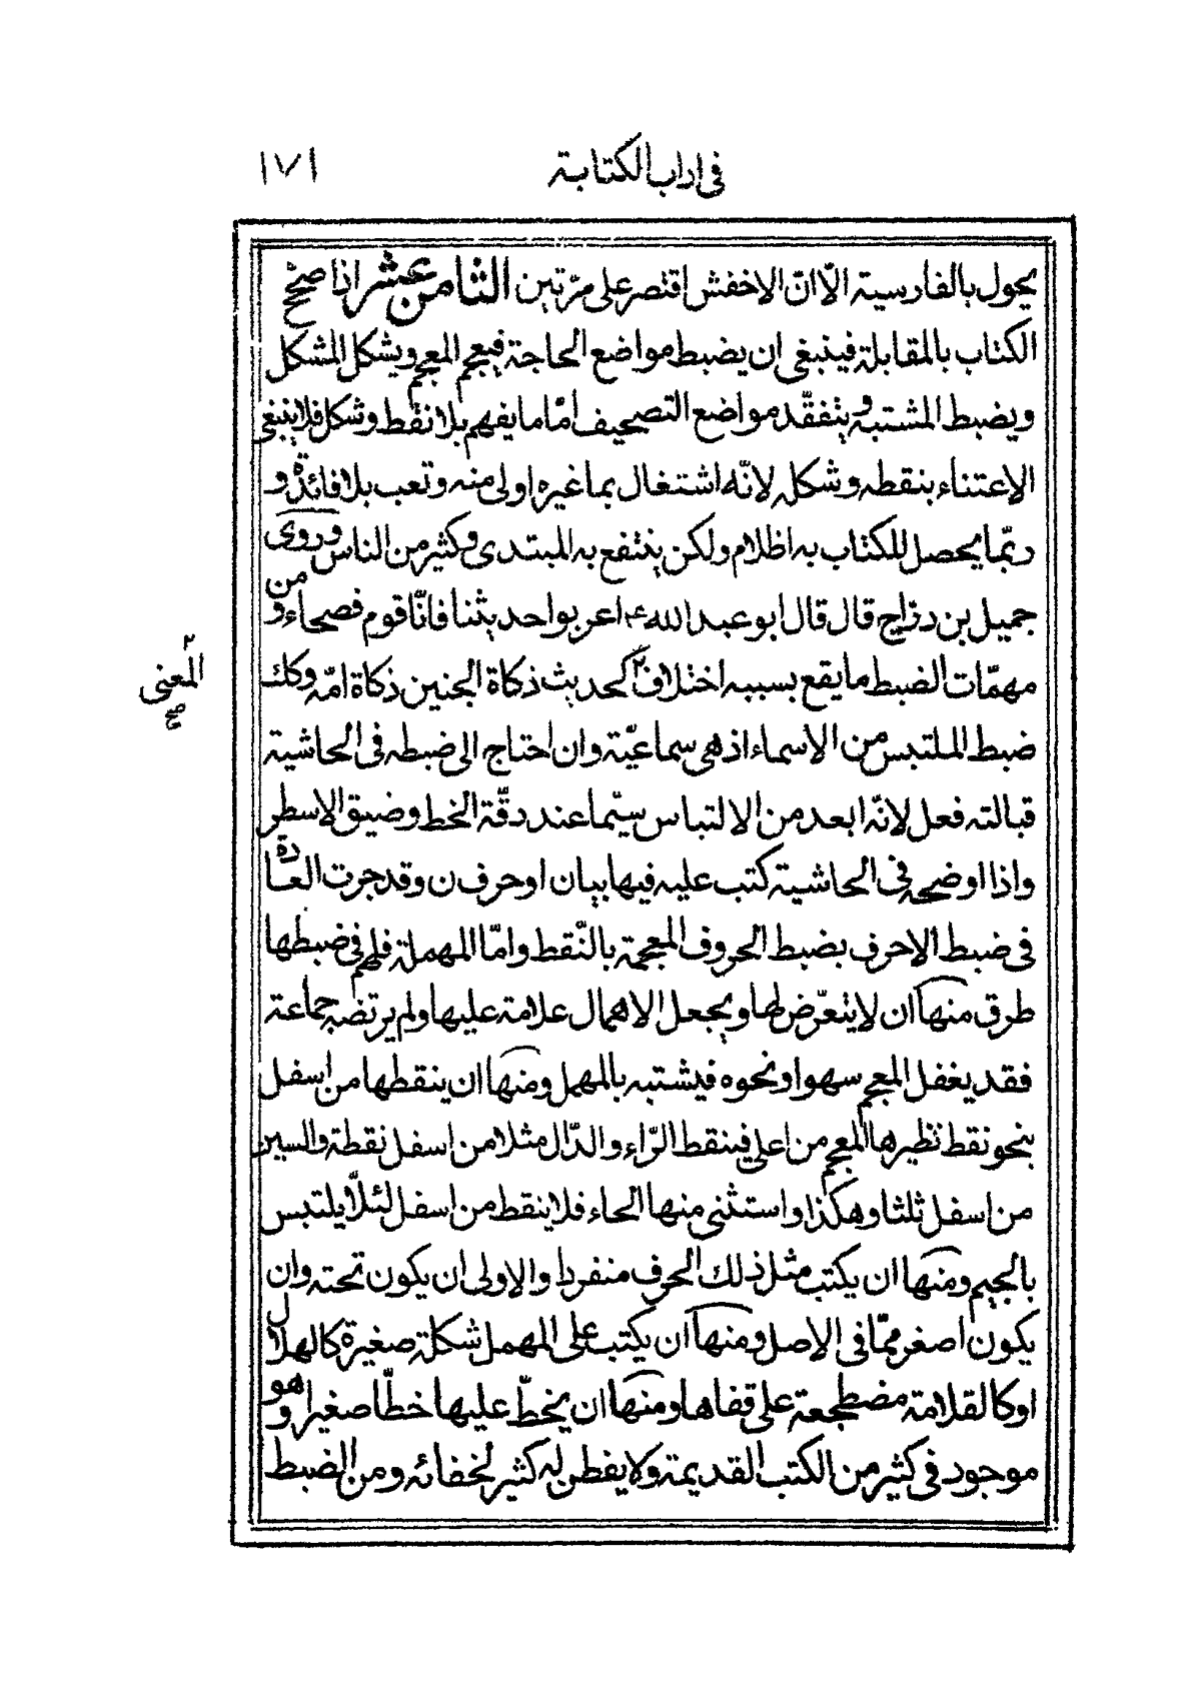 في اداب الكتابة
١٧١
يحول بالفارسية الّا انّ الاخفش اقتصر على مرّتين الثامن عشر اذا صحّح
الكتاب بالمقابلة فينبغي ان يضبط مواضع الحاجة فيعجم المعجم ويشكل المشكل
ويضبط المشتبه ويتفقّد مواضع التصحيف امّا ما يفهم بلا نقط وشكل فلا ينبغي
الاعتناء بنقطه وشكله لانّه اشتغال بما غيره اولى منه وتعب بلا فائدة و
ربّما يحصل للكتاب به اظلام ولكن ينتفع به المبتدى وكثير من الناس وروى
جميل بن درّاج قال قال ابو عبد الله ع اعربوا حديثنا فانّا قوم فصحاء و من
مهمّات الضبط ما يقع بسببه اختلاف٢ كحديث ذكاة الجنين ذكاة امّه وكك
٢ المعنى صح
ضبط الملتبس من الاسماء اذ هي سماعيّة وان احتاج الى ضبطه في الحاشية
قبالته فعل لانّه ابعد من الالتباس سيّما عند دقّة الخط وضيق الاسطر
واذا اوضحه في الحاشية كتب عليه فيها بيان او حرف ن وقد جرت العادة
في ضبط الاحرف بضبط الحروف المعجمة بالنّقط وامّا المهملة فلهم في ضبطها
طرق منها ان لا يتعرّض لها ويجعل الاهمال علامة عليها ولم يرتضه جماعة
فقد يغفل المعجم سهوا ونحوه فيشتبه بالمهمل ومنها ان ينقطها من اسفل
بنحو نقط نظيرها المعجم من اعلى فينقط الرّاء والدّال مثلا من اسفل نقطة والسين
من اسفل ثلثا وهكذا واستثنى منها الحاء فلا ينقط من اسفل لئلّا يلتبس
بالجيم ومنها ان يكتب مثل ذلك الحرف منفردا والاولى ان يكون تحته وان
يكون اصغر ممّا في الاصل ومنها ان يكتب على المهمل شكلة صغيرة كالهلال
او كالقلامة مضطجعة على قفاها ومنها ان يخطّ عليها خطّا صغيرا وهو
موجود في كثير من الكتب القديمة ولا يفطن له كثير لخفائه ومن الضبط